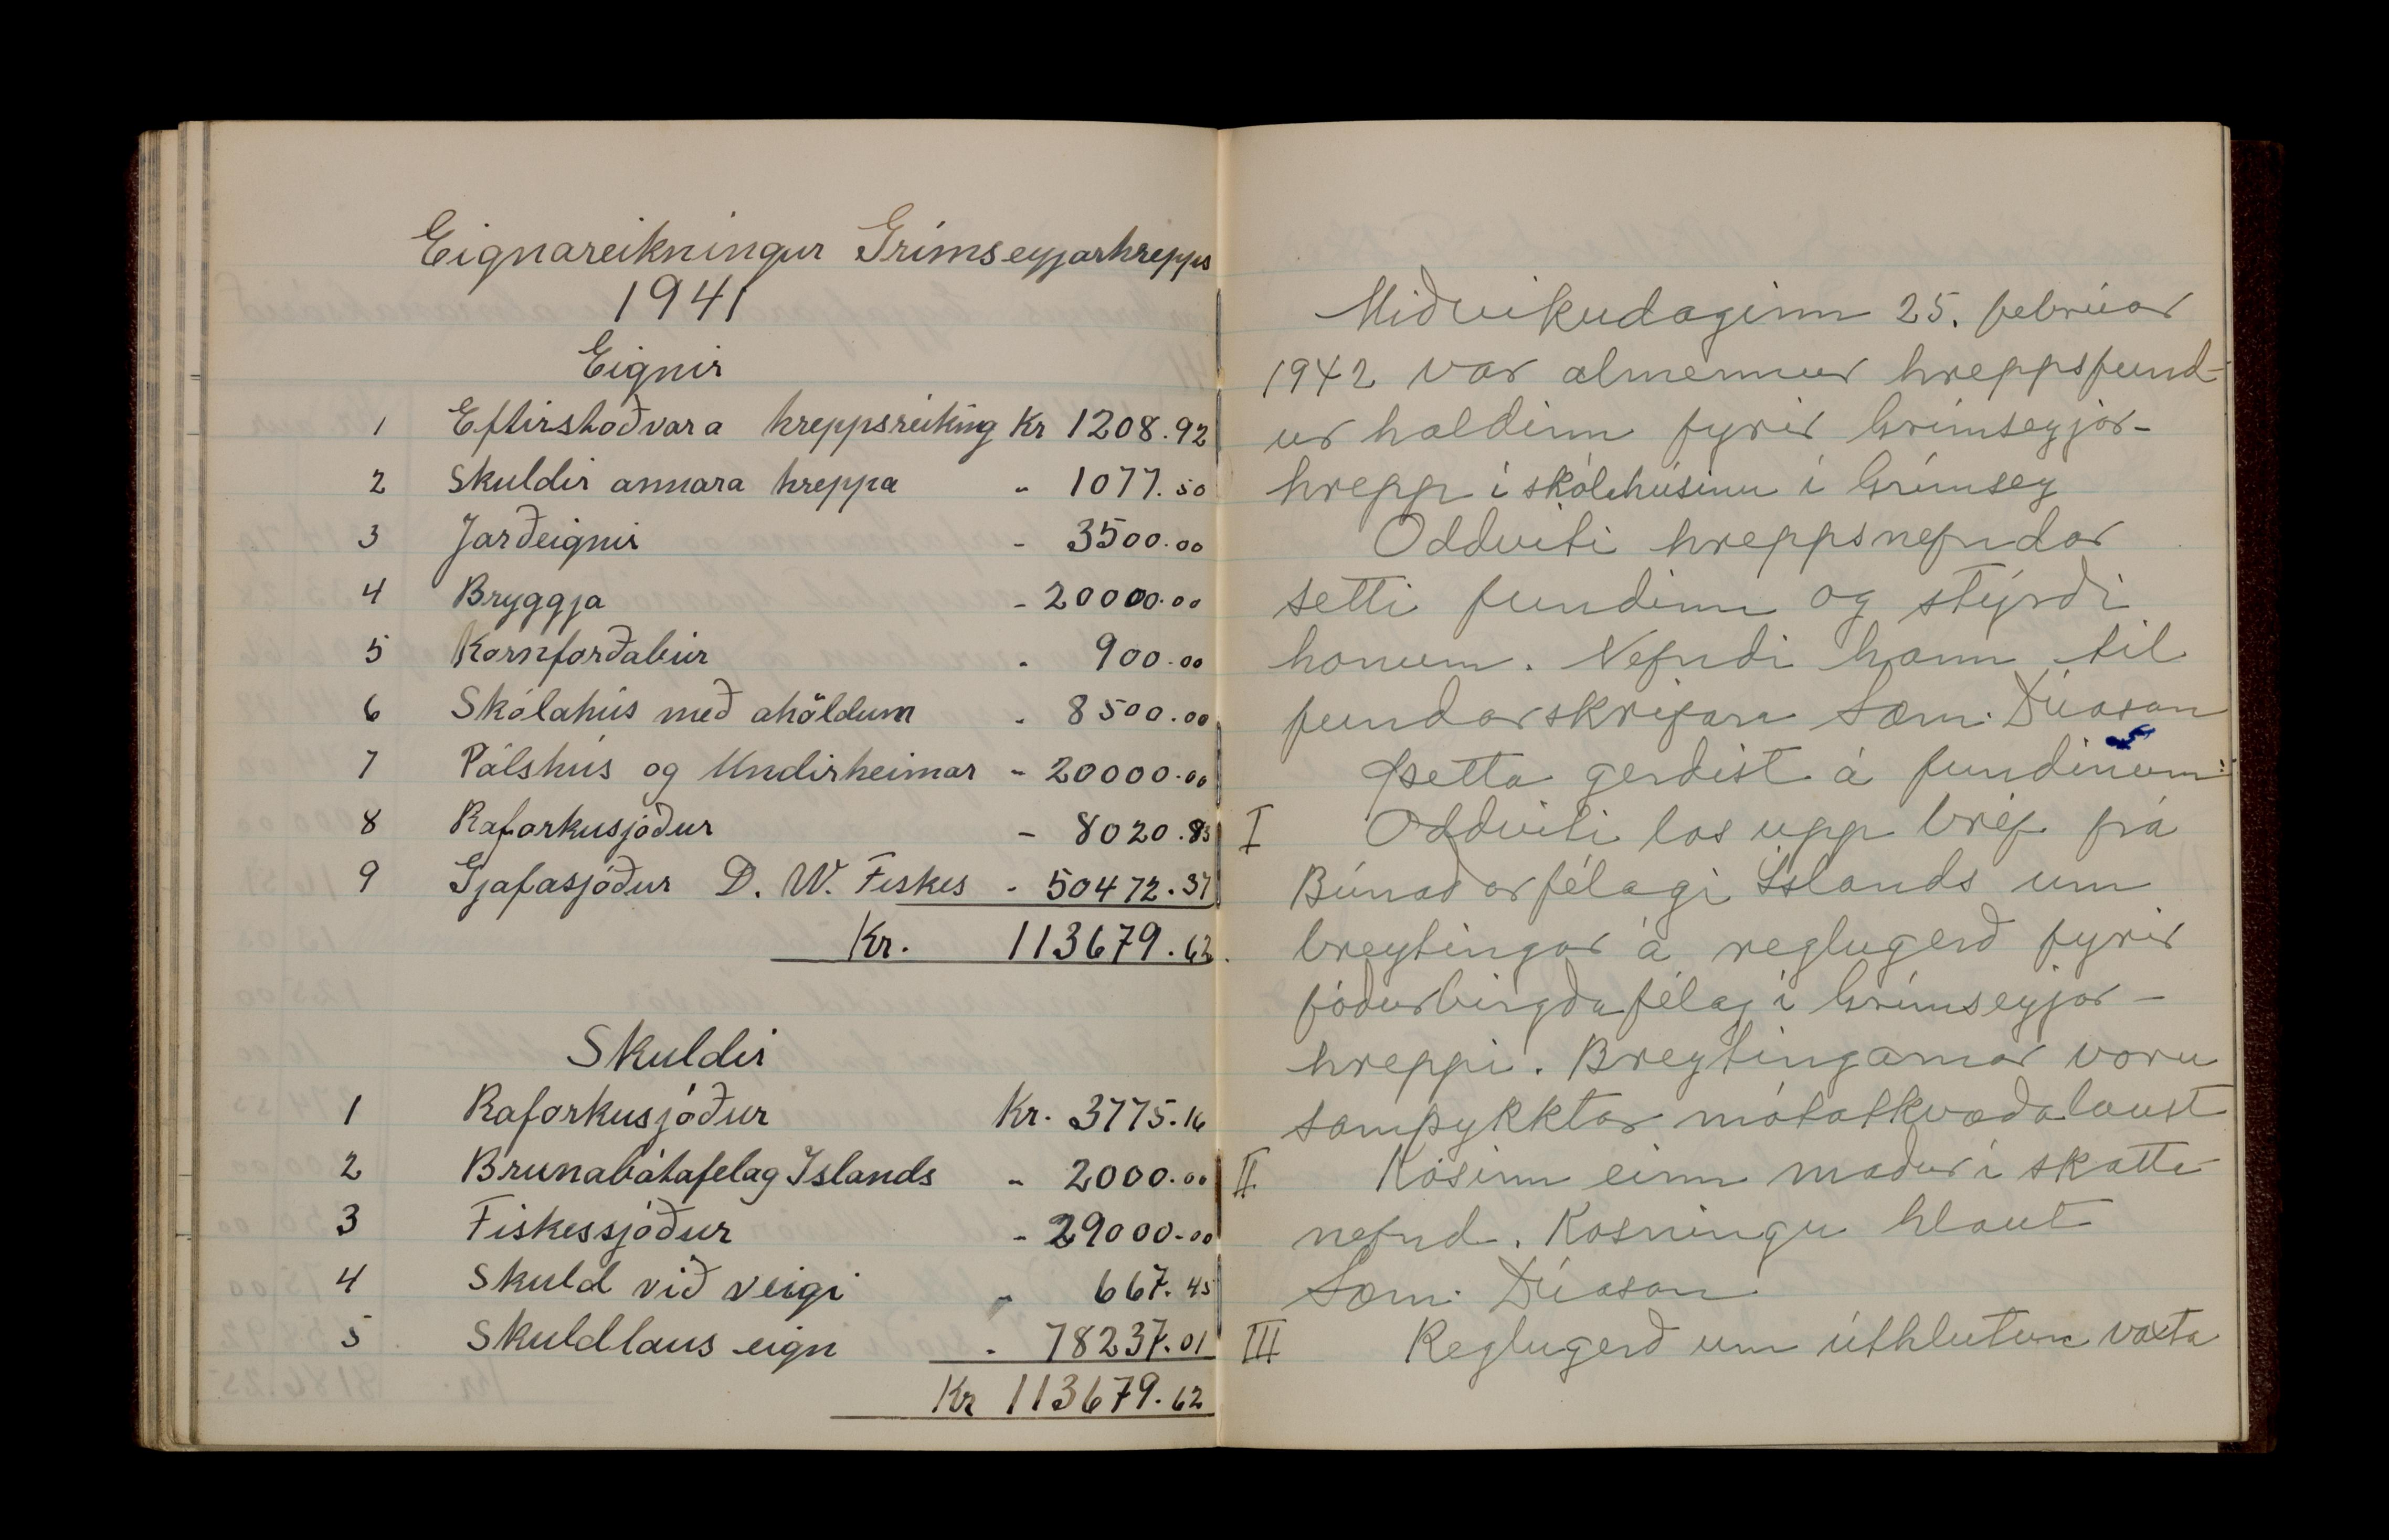 Eignareikningur Grímseyjarhrepps
1941
Eignir
1 Eftirstoðvara hreppsreikíng Kr 1208.92
2 Skuldir annara hreppa - 1077.50
3 Jarðeignir - 3500.00
4 Bryggja - 20000.00
5 Kornforðabúr - 900.00
6 Skólahús með aholdum - 8500.00
7 Pálshús og Undirheimar - 20000.00
8 Raforkusjóður - 8020.83
9 Gjafasjóður D. W. Fiskes - 50472.37
Kr. 113679.62
Skuldir
1 Raforkusjóður Kr. 3775.16
2 Brunabótafelag Islands - 2000.00
3 Fiskessjóður - 29000.00
4 Skuld við veigi - 667.45
5 Skuldlaus eign - 78237.01
Kr 113679.62
Miðvikudaginn 25. febrúar
1942 var almennur hreppsfund-
ur haldinn fyrir Grímseyjar-
hrepp í skólahúsinu í Grímsey
Oddviti hreppsnefndar
setti fundinn og stýrði
honum. Nefndi hann til
fundarskrifara Sæm. Dúason
Þetta gerðist á fundinum:
I Oddviti las upp bréf frá
Búnaðarfélagi Íslands um
breytingar á reglugerð fyrir
fóðurbirgðafélag í Grímseyjar-
hreppi. Breytingarnar voru
samþykktar mótatkvæðalaust
II Kosinn einn maður í skatta-
nefnd. Kosningu hlaut
Sæm. Dúason
III Reglugerð um úthlutun vaxta